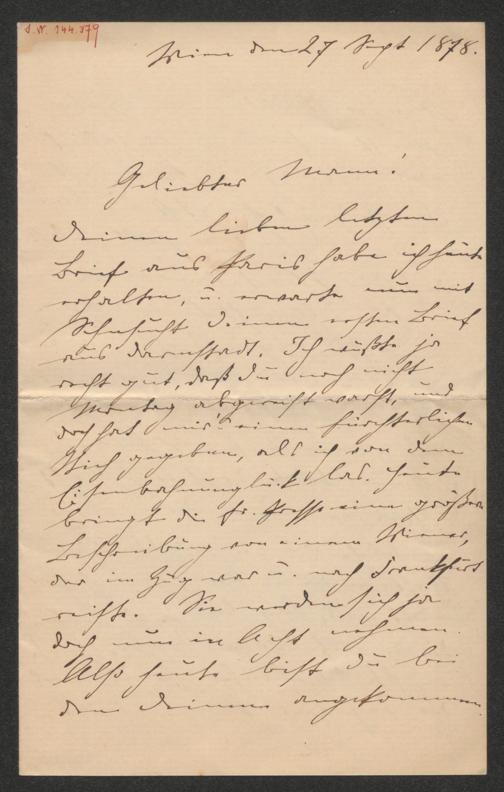 J.N. 144.379
Wien den 27 Sept 1878.
Geliebter Mann!
Deinen lieben letzten
Brief aus Paris habe ich heute
erhalten, u. erwarte nun mit
Sehnsucht Deinen ersten Brief
aus Darmstadt. Ich wußte ja
recht gut, daß Du noch nicht
Montag abgereist warst, und
doch hat mir's einen fürchterlichen
Stich gegeben, als ich von dem
Eisenbahnunglück las. Heute
bringt die fr. Presse eine größere
Beschreibung von einem Wiener,
der im Zug war u. nach Frankfurt
reiste. Sie werden sich ja
doch nun in Acht nehmen.
Also heute bist Du bei
den Deinen angekommen